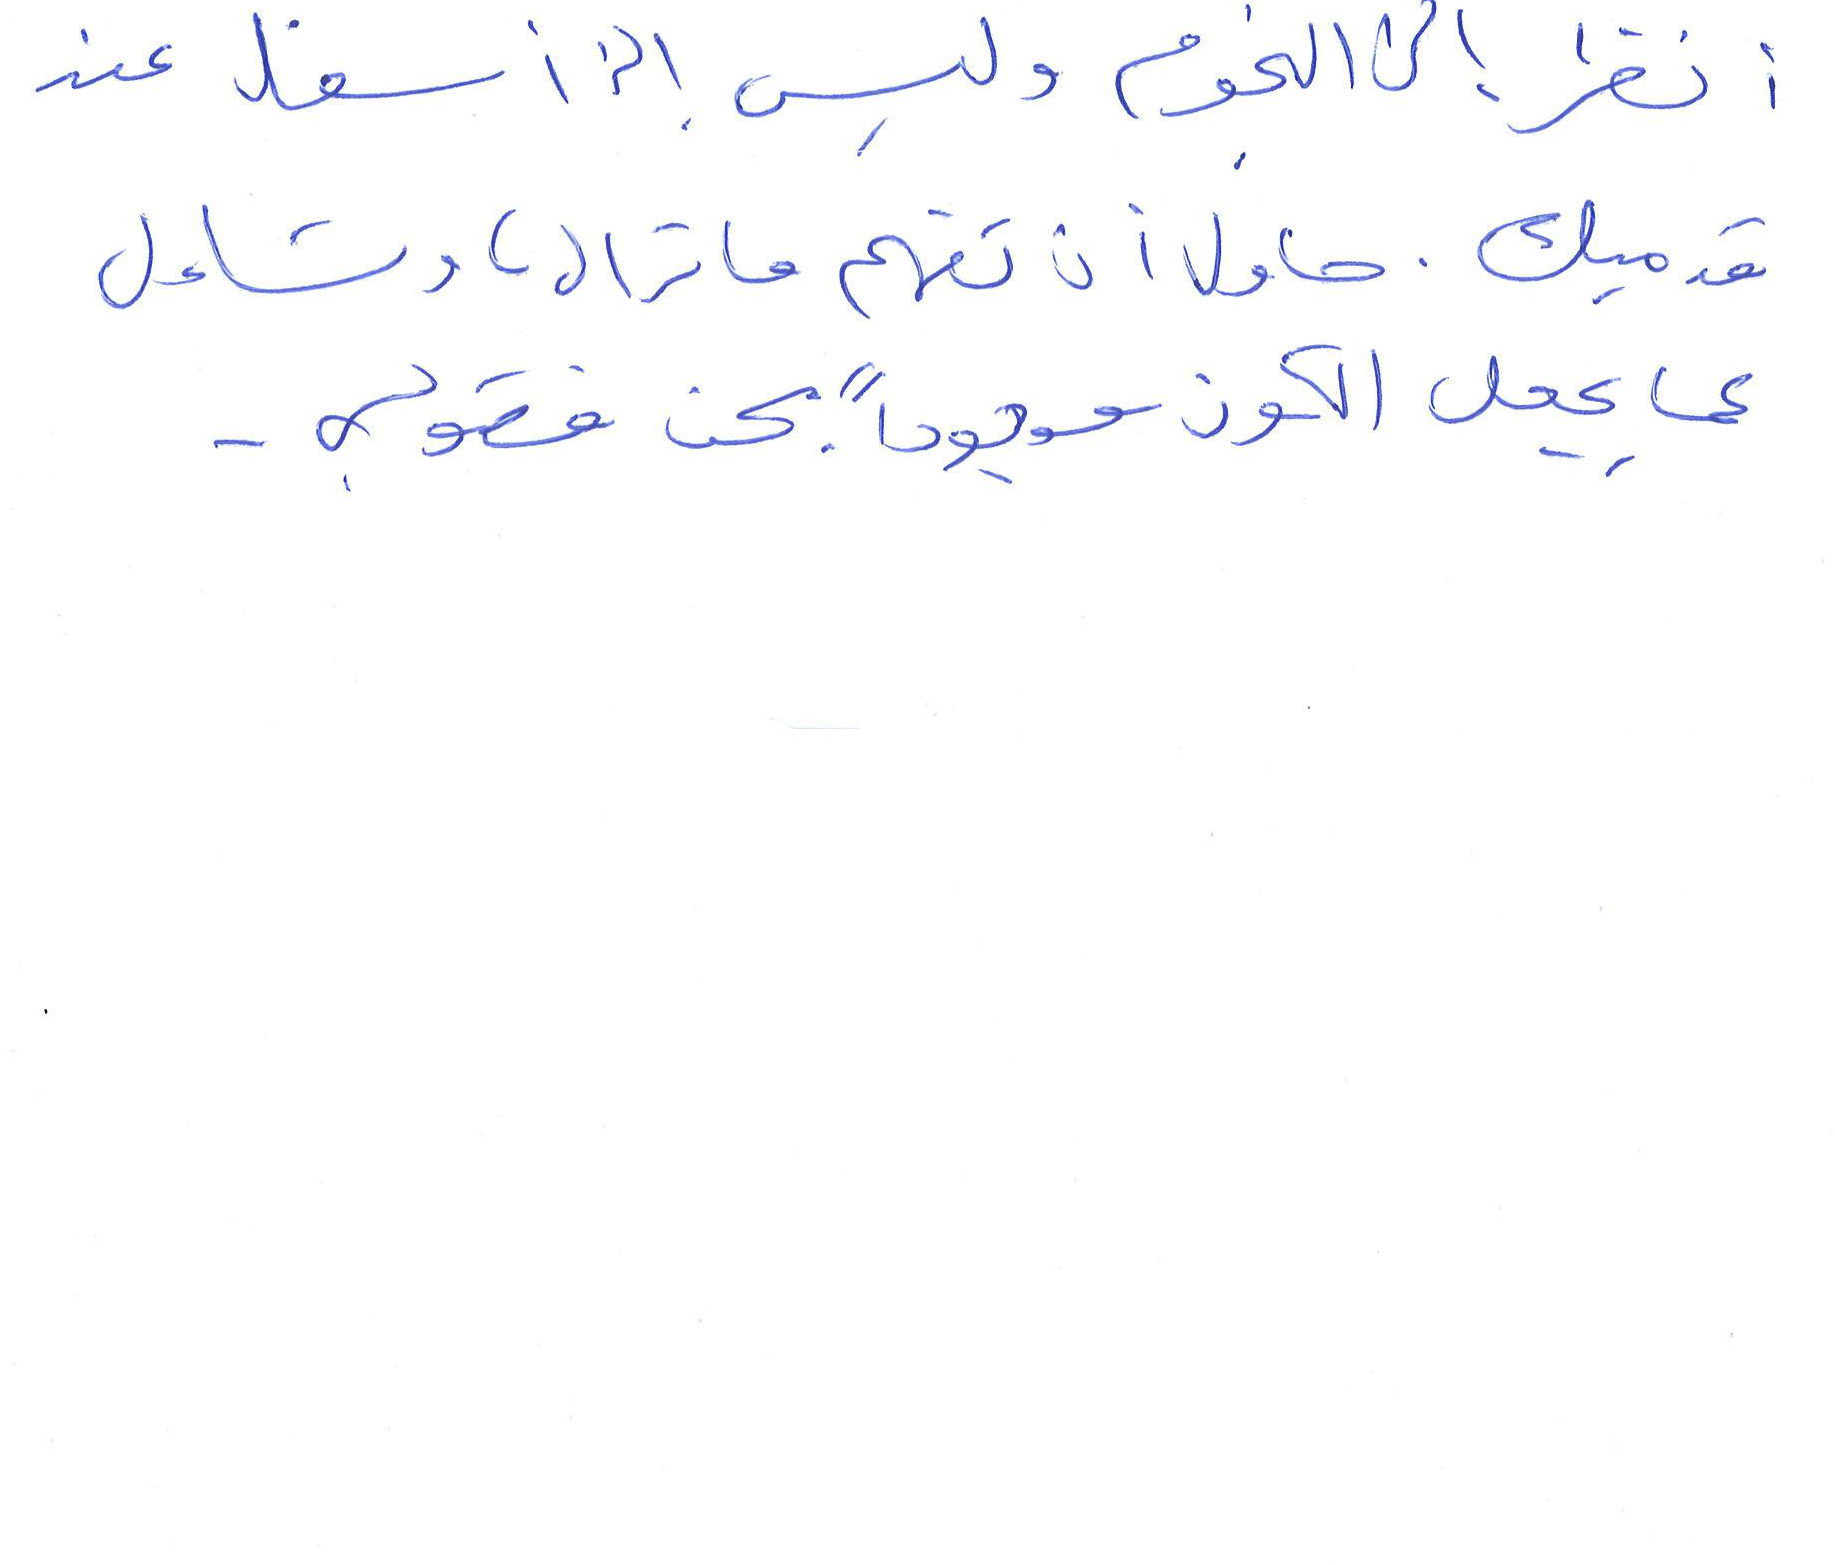 أنظر إلى النجوم وليس إلى أسفل عند
قدميك. حاول أن تفهم ما تراه، وتساءل
عما يجعل الكون موجوداً. كن فضولي -